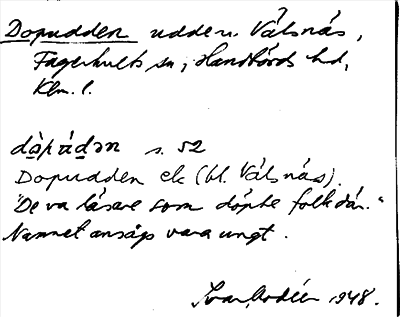 Dopudden udde v. Välsnäs,
Fagerhults sn, Handbörds hd,
Klm. l.
dòpúdən s. 52
Dopudden ek (bl. Välsnäs).
"De va läsare som döpte folk där."
Namnet anságs vara ungt.
Ivar Modéer 1948.